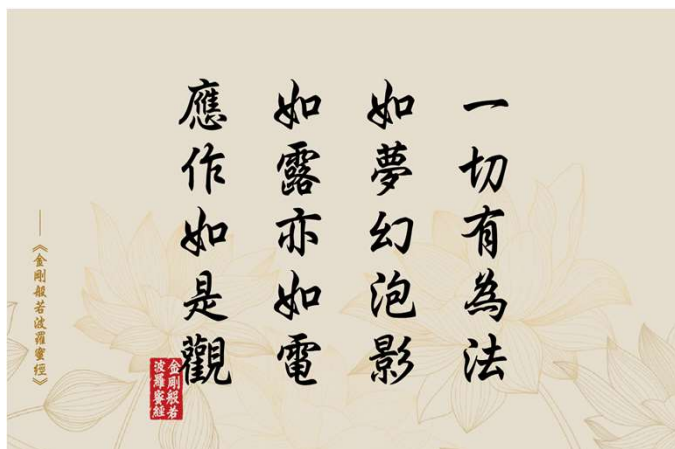 一切有為法
如夢幻泡影
如露亦如電
應作如是觀
金剛般若
波羅蜜經
——《金剛般若波羅蜜經》